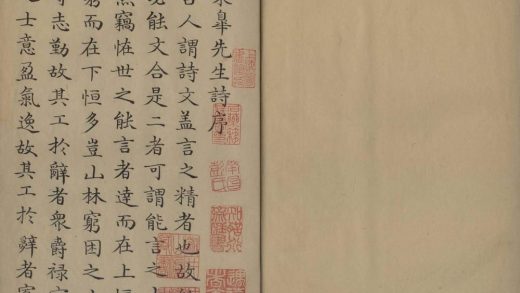 皐先生詩序
人謂詩文盖言之精者也故
能文合是二者可謂能言之
然竊恠世之能言者達而在上恒
窮而在下恒多豈山林窮困之
志勤故其工於辭者衆爵禄
士意盈氣逸故其工於辭者寡